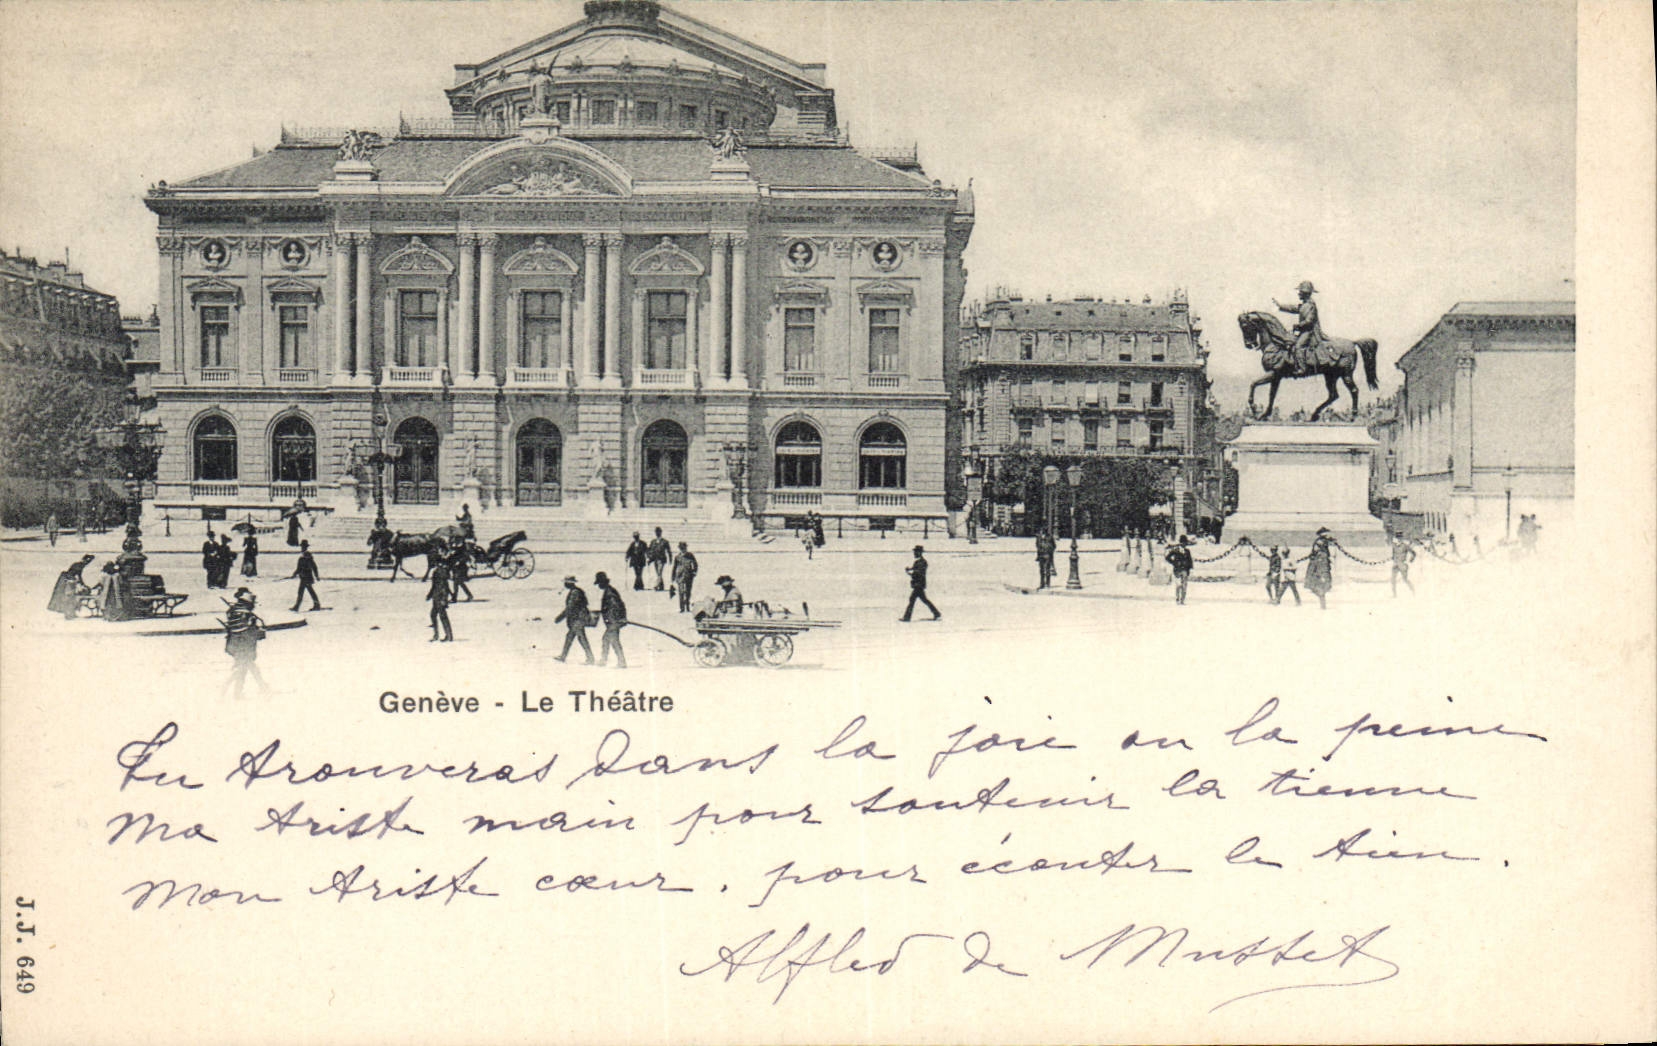 Genève - Le Théâtre
Tu trouveras dans la joie ou la peine
Ma triste main pour soutenir la tienne
Mon triste cœur, pour écouter le tien.
Alfred de Musset
J.J. 649